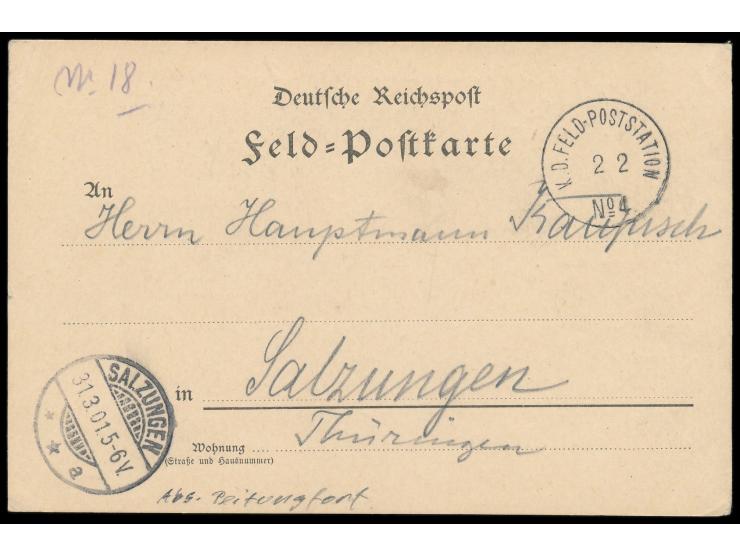 Nr. 18.
Deutsche Reichspost
Feld-Postkarte
K.D. FELD-POSTSTATION
2 2
No 4
An
Herrn Hauptmann
SALZUNGEN
31.3.01.5-6V.
a
in Salzungen
Wohnung Thüringen
(Straße und Hausnummer)
Abs. Peitangfort